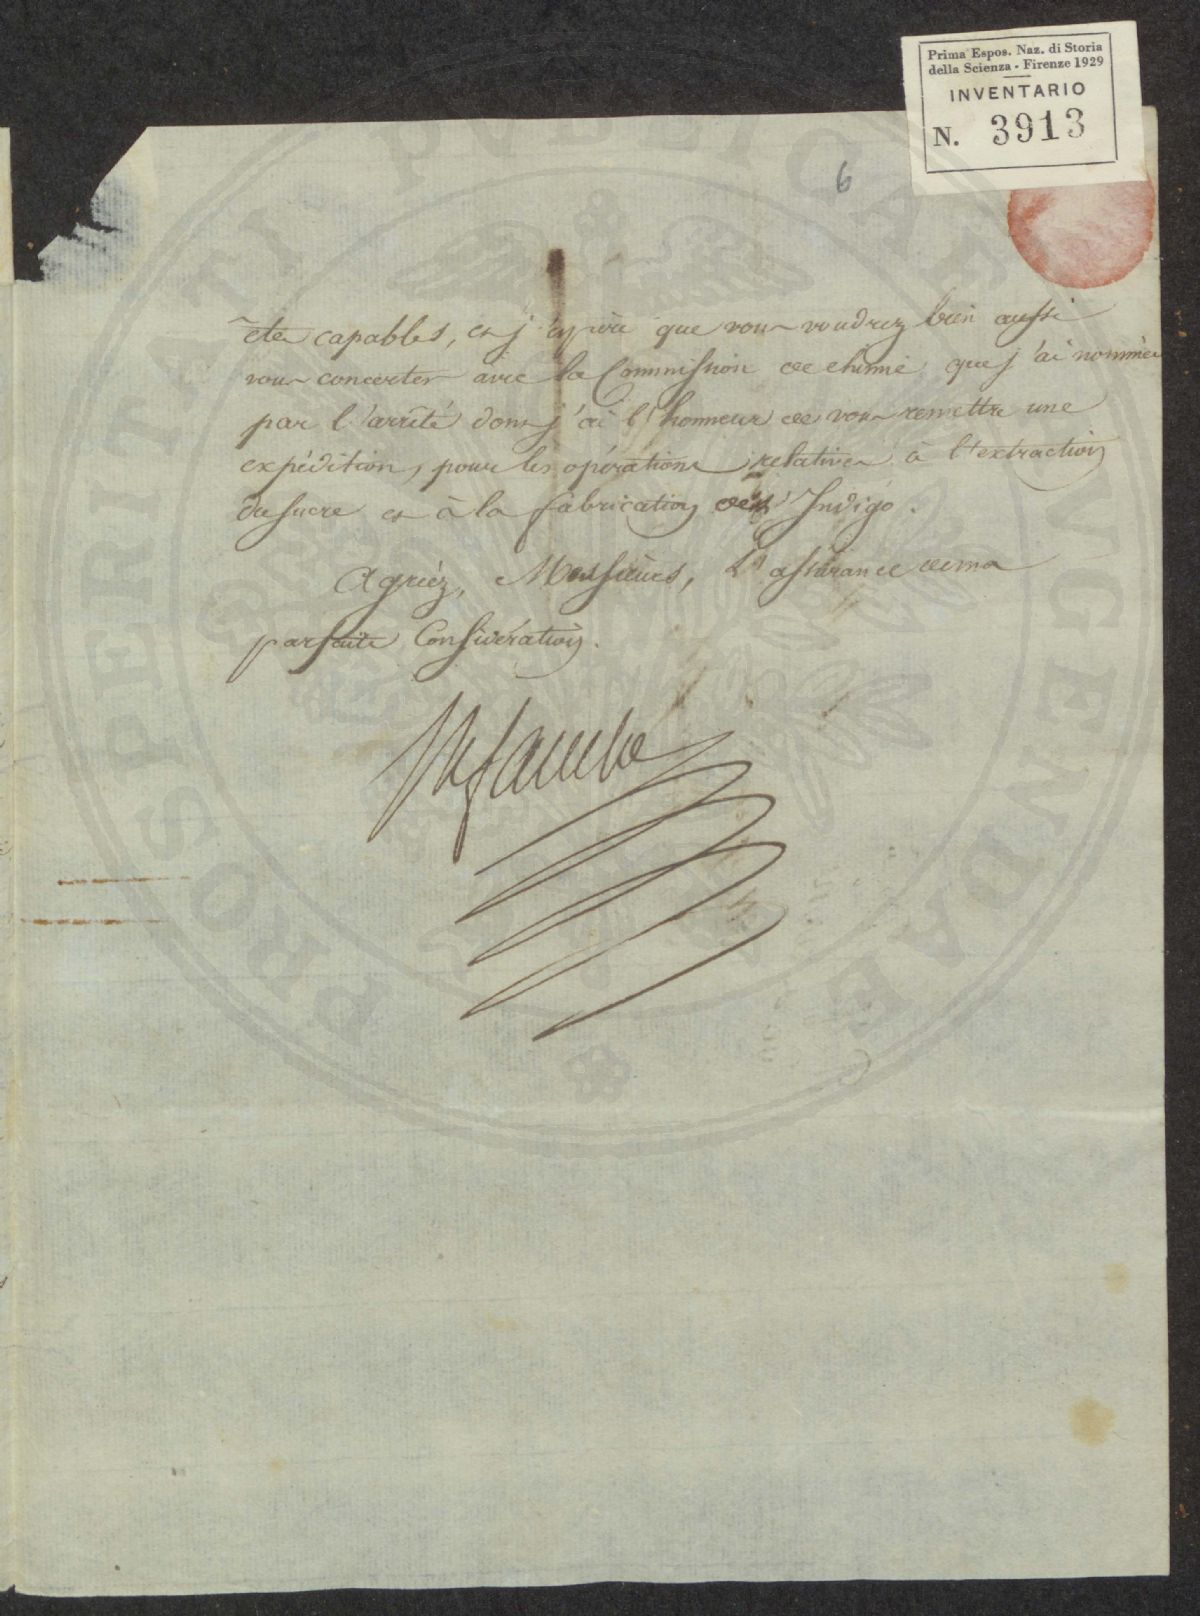 Prima Espos. Naz. di Storia
della Scienza - Firenze 1929
INVENTARIO
N. 3913
6
êtes capables, et j'espère que vous voudrez bien aussi
vous concerter avec la Commission de chimie que j'ai nommée
par l'arrêté dont j'ai l'honneur de vous remettre une
expédition, pour les opérations relatives à l'extraction
du sucre et à la fabrication de l'Indigo.
Agréez, Messieurs, l'assurance de ma
parfaite Considération.
PROSPERITATI PUBLICAE AUGENDAE